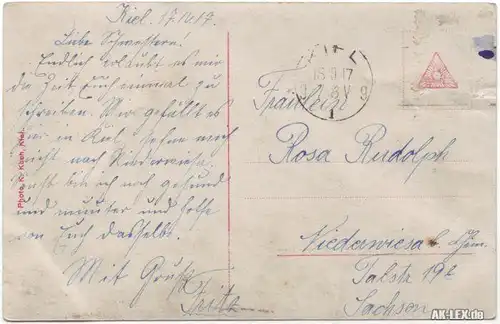 Kiel. 17.10.17.
Liebe Schwestern!
Endlich erlaubt es mir
die Zeit Euch einmal zu
schreiben. Mir gefällt es
hier in Kiel, sehne mich
nicht nach Niederwiesa.
Sonst bin ich noch gesund
und munter und hoffe
von Euch dasselbe.
Mit Gruß
Fritz
Photo. Kiel.
KIEL
17
8-9 V
1
Fräulein
Rosa Rudolph
Niederwiesa b. Chem.
Talstr 19
Sachsen
AK-LEX.de